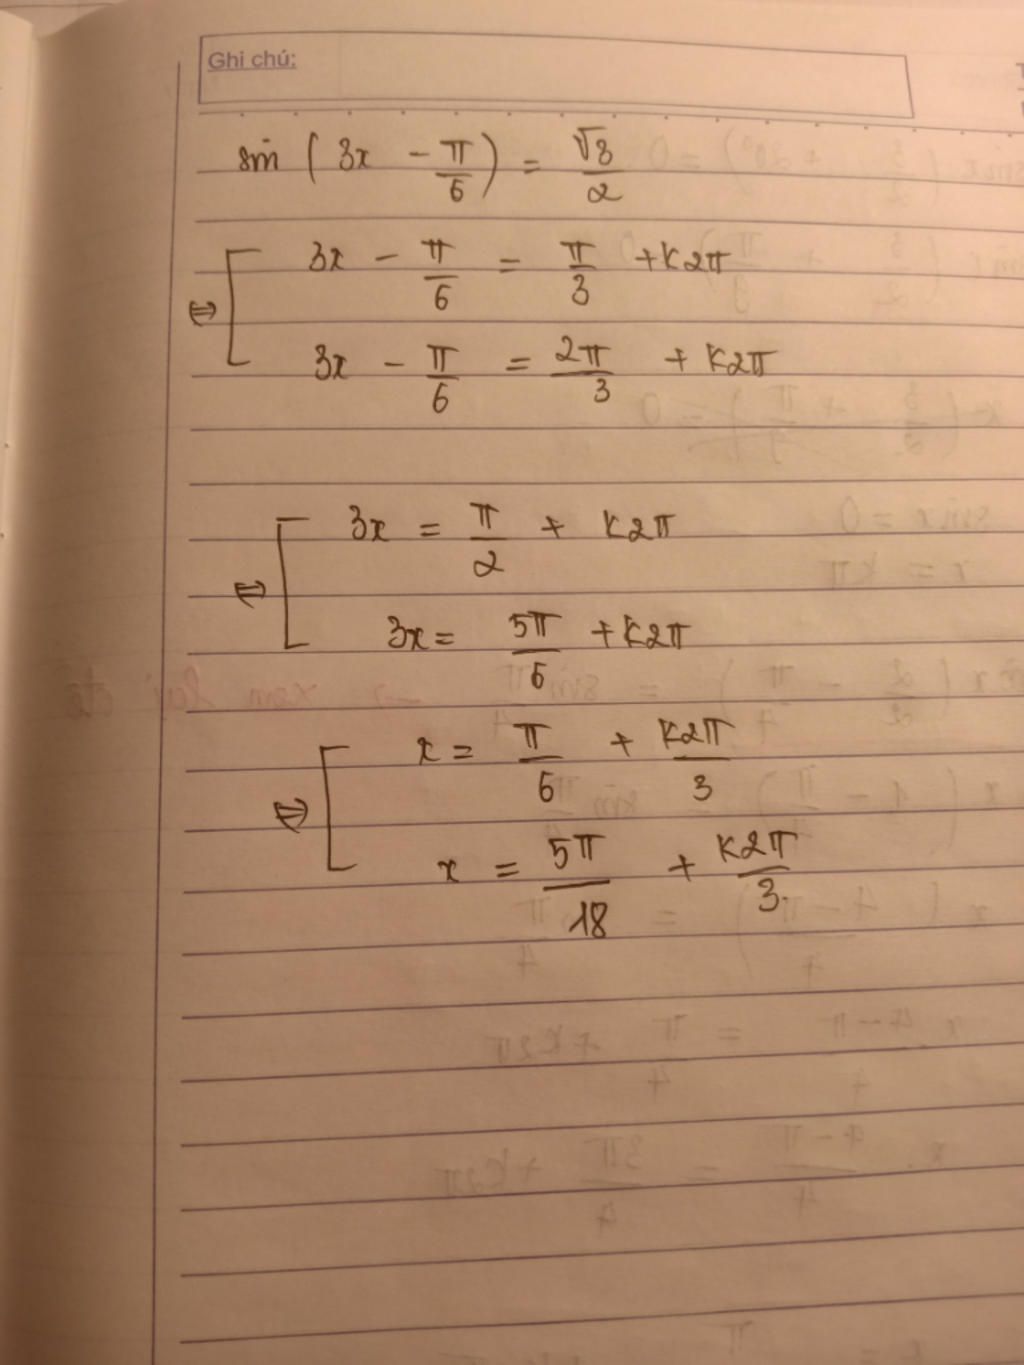 Ghi chú:
sin (3x - π/6) = √3/2
⇔ [ 3x - π/6 = π/3 + k2π
3x - π/6 = 2π/3 + k2π
⇔ [ 3x = π/2 + k2π
3x = 5π/6 + k2π
⇔ [ x = π/6 + k2π/3
x = 5π/18 + k2π/3